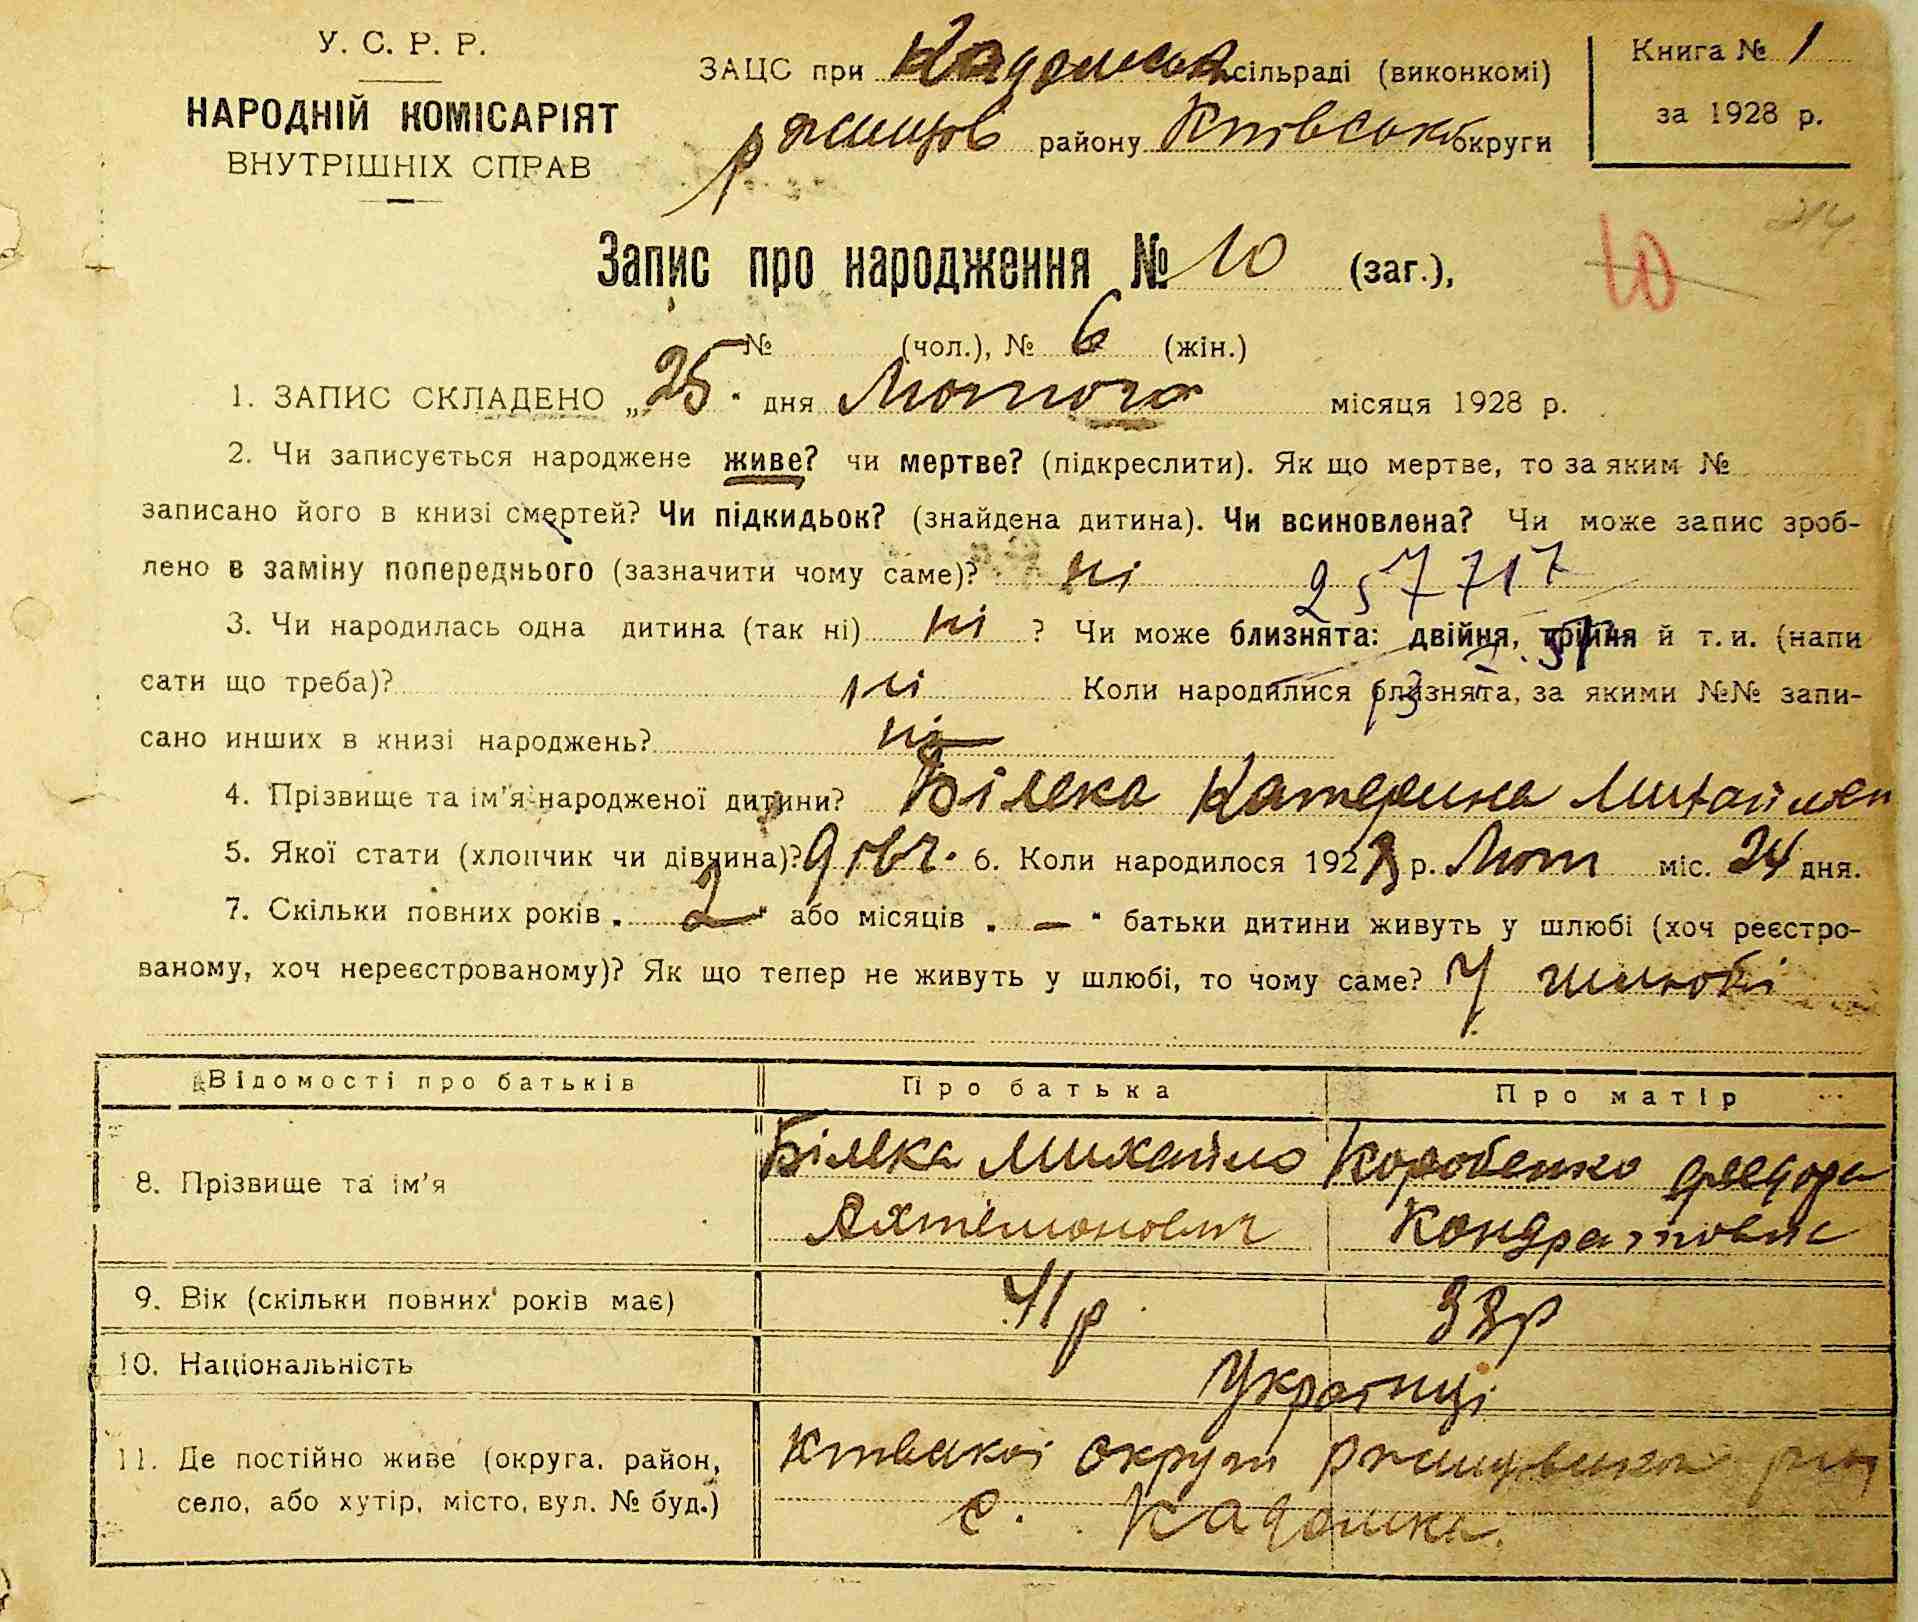 У. С. Р. Р.
НАРОДНІЙ КОМІСАРІЯТ
ВНУТРІШНІХ СПРАВ
ЗАЦС при Кадомськ сільраді (виконкомі)
ржищів району Київськ округи
Книга № 1
за 1928 р.
Запис про народження № 10 (заг.),
10
№ (чол.), № 6 (жін.)
1. ЗАПИС СКЛАДЕНО „25" дня Лютого місяця 1928 р.
2. Чи записується народжене живе? чи мертве? (підкреслити). Як що мертве, то за яким №
записано його в книзі смертей? Чи підкидьок? (знайдена дитина). Чи всиновлена? Чи може запис зроб-
лено в заміну попереднього (зазначити чому саме)? ні
257717
3. Чи народилась одна дитина (так ні) ні ? Чи може близнята: двійня, трійня й т. и. (напи
сати що треба)? ні Коли народилися близнята, за якими №№ запи-
сано инших в книзі народжень? ні
4. Прізвище та ім'я народженої дитини? Білека Катерина Михайлов
5. Якої стати (хлопчик чи дівчина)? дівч. 6. Коли народилося 1928 р. Лют міс. 24 дня.
7. Скільки повних років „ 2 " або місяців „ — " батьки дитини живуть у шлюбі (хоч реєстро-
ваному, хоч нереєстрованому)? Як що тепер не живуть у шлюбі, то чому саме? У шлюбі
Відомості про батьків Про батька Про матір
8. Прізвище та ім'я Білека Михайло Коробенко Федора
Ахтемонович Кондратовна
9. Вік (скільки повних років має) 41р 33р
10. Національність Українці
11. Де постійно живе (округа, район, Київської округи Ржищівського рай
село, або хутір, місто, вул. № буд.) с. Кадомка.